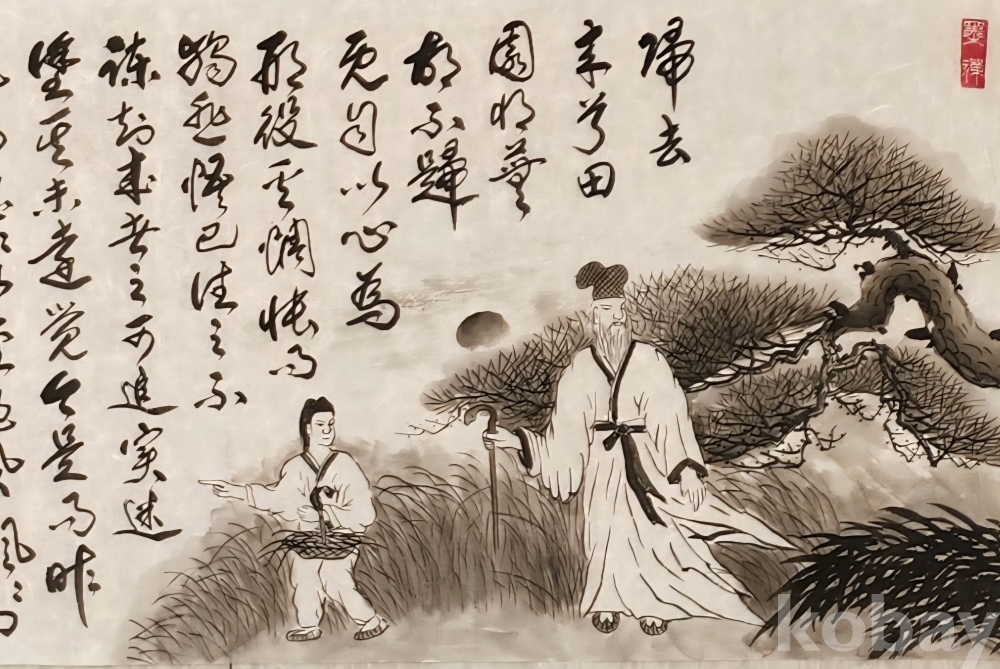 帰去
来兮田
園将蕪
胡不歸
既自以心為
形役奚惆悵而
獨悲悟已往之不
諫知来者之可追実迷
塗其未遠覚今是而昨
kobay